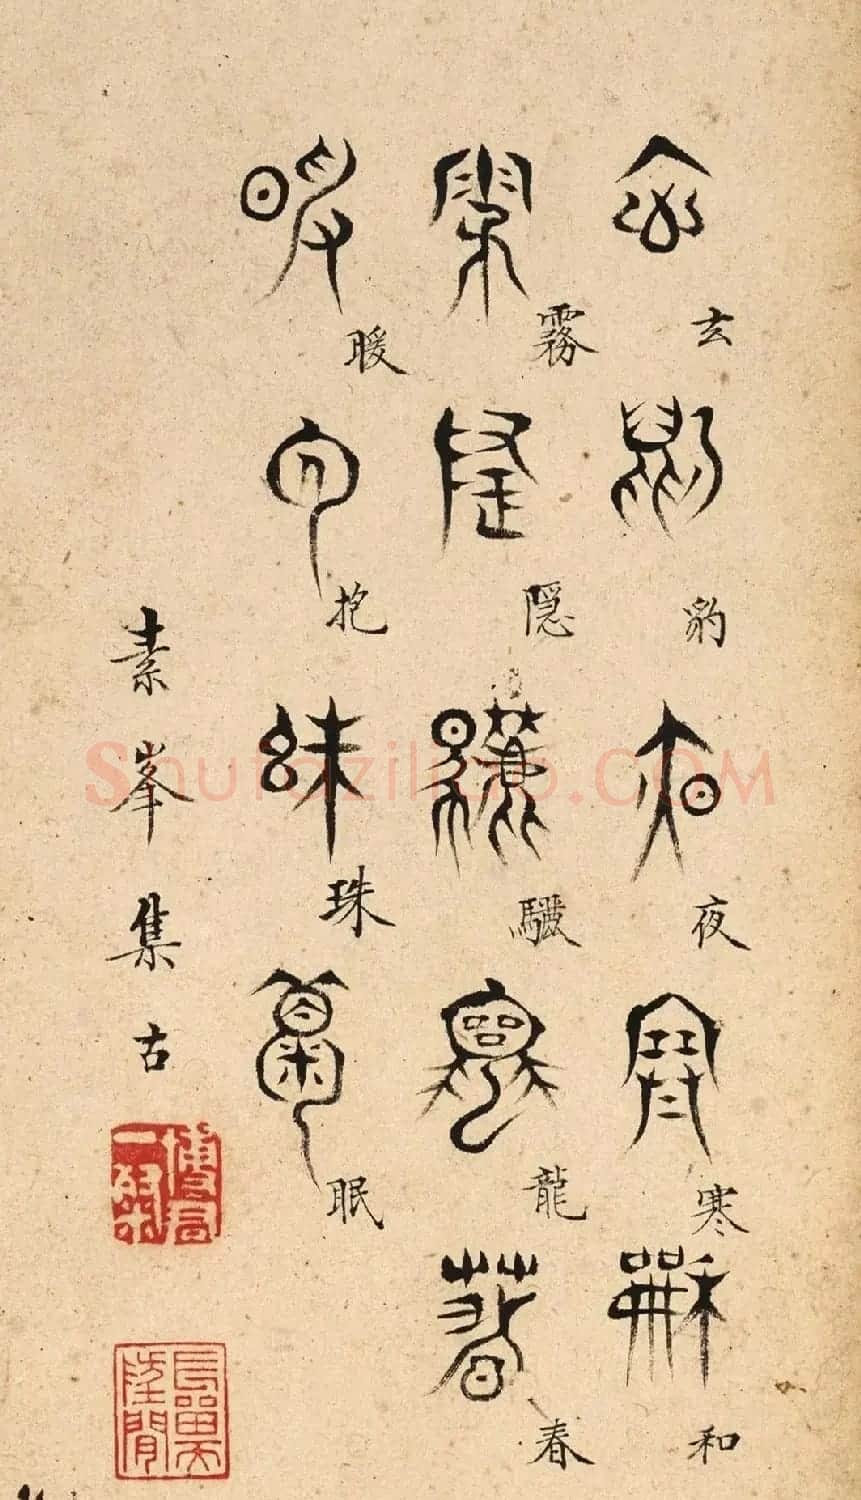 玄豹夜寒和
霧隱驪龍春
暖抱珠眠
素峯集古
Shufaziliao.COM